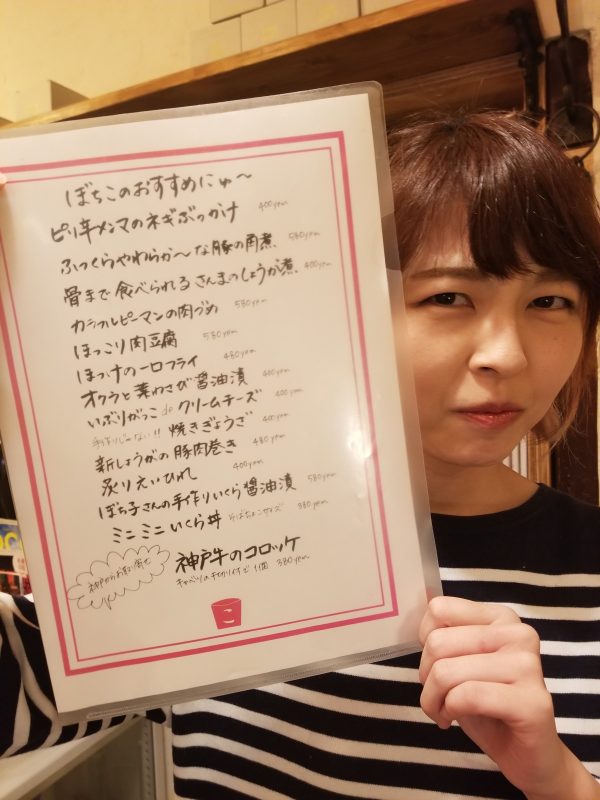 ぼちこのおすすめにゅ〜
ピリ辛メンマのネギぶっかけ 400yen
ふっくらやわらか〜な豚の角煮 580yen
骨まで食べられるさんまのしょうが煮 400yen
カラフルピーマンの肉づめ 580yen
ほっこり肉豆腐 580yen
ほっけの一口フライ 480yen
オクラと葉わさび醤油漬 400yen
いぶりがっこ de クリームチーズ 400yen
手作りじゃない!! 焼きぎょうざ 400yen
新しょうがの豚肉巻き 480yen
炙りえいひれ 400yen
ぼち子さんの手作りいくら醤油漬 580yen
ミニミニいくら丼 そばちょこサイズ 380yen
神戸からお取り寄せ
神戸牛のコロッケ
キャベツの千切り付で 1個 380yen
こ